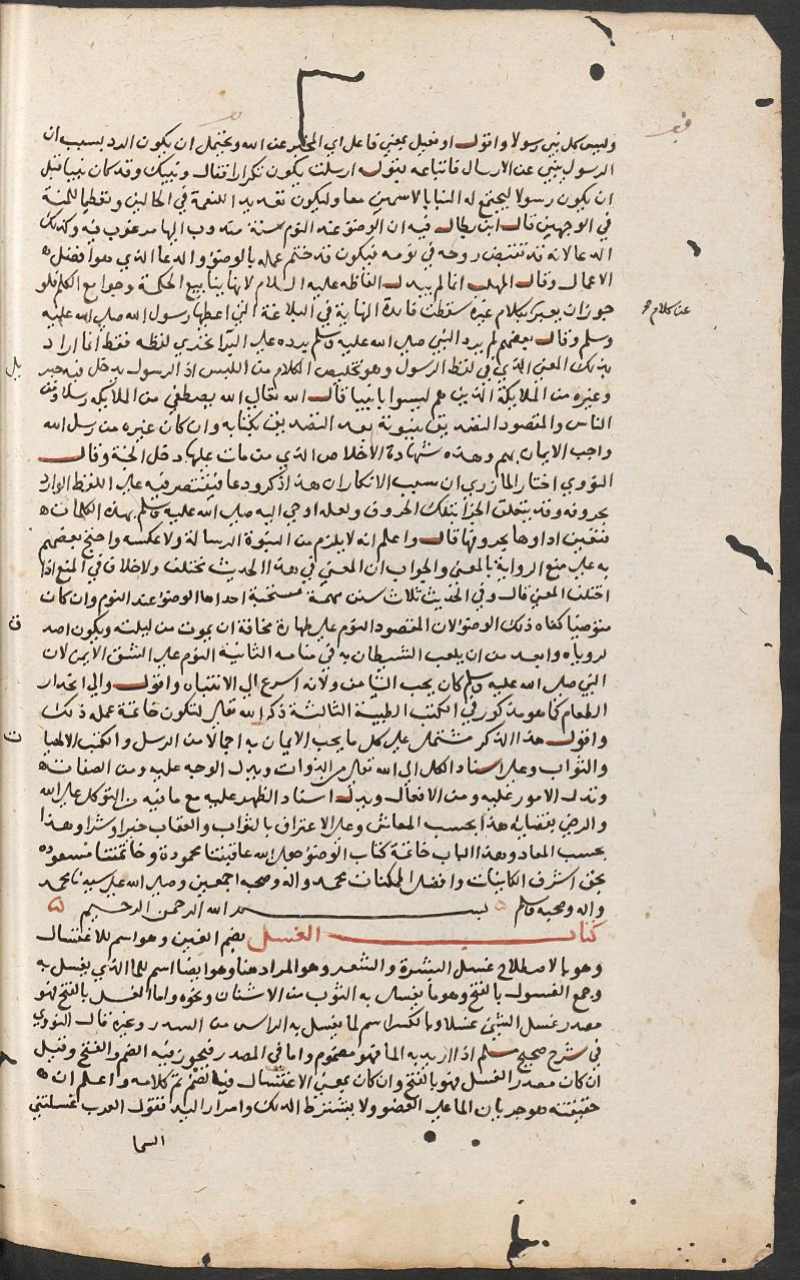 وليس كل نبي رسولا واقول او فعيل بمعني فاعل اي المخبر عن الله ويحتمل ان يكون الرد بسبب ان
الرسول ينبي عن الارسال فاتباعه بقوله ارسلت يكون تكرارا فقال ونبيك وقد كان نبيا قبل
ان يكون رسولا ليجتمع له الثنا بالاسمين معا وليكون تعديدا للنعمة في الحالين وتعظيما للمنة
في الوجهين قال ابن بطال فيه ان الوضوء عند النوم سنة مندوب اليها مرغوب فيه وكذلك
الدعا لانه قد تقبض روحه في نومه فيكون قد ختم عمله بالوضوء والدعا الذي هو افضل
الاعمال وقال المهلب انما لم يبدل الفاظه عليه السلام لانها ينابيع الحكمة وجوامع الكلم فلو
جوز ان يعبر بكلام غيره سقطت فائدة النهاية في البلاغة التي اعطيها رسول الله صلي الله عليه
وسلم وقال بعضهم لم يرد النبي صلي الله عليه وسلم برده علي البرا تحري لفظه فقط انما اراد
بذلك المعني الذي في لفظ الرسول وهو تخليص الكلام من اللبس اذ الرسول يدخل فيه جبريل
وغيره من الملايكة الذين هم ليسوا بانبيا قال الله تعالي الله يصطفي من الملايكة رسلا ومن
الناس والمقصود التصديق بنبوته بعد التصديق بكتابه وان كان غيره من رسل الله
واجب الايمان بهم وهذه شهادة الاخلاص الذي من مات عليها دخل الجنة وقال
النووي اختار المازري ان سبب الانكار ان هذا ذكر ودعا فيقتصر فيه علي اللفظ الوارد
بحروفه وقد يتعلق الجزا بتلك الحروف ولعله اوحي اليه صلي الله عليه وسلم بهذه الكلمات
فتعين اداوها بحروفها قال واعلم انه لا يلزم من النبوة الرسالة ولا عكسه واحتج بعضهم
به علي منع الرواية بالمعني والجواب ان المعني في هذا الحديث مختلف ولا خلاف في المنع اذا
اختلف المعني قال وفي الحديث ثلاث سنن مهمة مستحبة احداها الوضوء عند النوم وان كان
متوضيا كفاه ذلك الوضوء لان المقصود النوم علي طهارة مخافة ان يموت من ليلته ويكون اصدق
لروياه وابعد من ان يلعب الشيطان به في منامه الثانية النوم علي الشق الايمن لان
النبي صلي الله عليه وسلم كان يحب التيامن ولانه اسرع الي الانتباه واقول والي انحدار
الطعام كما هو مذكور في الكتب الطبية الثالثة ذكر الله تعالي لتكون خاتمة عمله ذلك
واقول هذا الذكر مشتمل علي كل ما يجب الايمان به اجمالا من الرسل والكتب الالهيات
والثواب وعلي اسناد الكل الي الله تعالي من الذوات ويدل الوجه عليه ومن الصفات
وتدل الامور عليه ومن الافعال ويدل اسناد الظهر عليه مع ما فيه من التوكل علي الله
والرضي بقضايه هذا بحسب المعاش وعلي الاعتراف بالثواب والعقاب خيرا وشرا وهذا
بحسب المعاد وهذا الباب خاتمة كتاب الوضوء جعل الله عاقبتنا محمودة وخاتمتنا مسعوده
بحق اشرف الكاينات وافضل الممكنات محمد واله وصحبه اجمعين وصلي الله علي سيدنا محمد
واله وصحبه وسلم ۵ بسم الله الرحمن الرحيم ۵
كتاب الغسل بضم الغين وهو اسم للاغتسال
وهو بالاصطلاح غسل البشرة والشعر وهو المراد هنا وهو ايضا اسم للما الذي يغسل به
وجمع الغسول بالفتح وهو ما يغسل به الثوب من الاشنان ونحوه واما الغسل بالفتح فهو
مصدر غسل الشي غسلا وبالكسر اسم لما يغسل به الراس من السدر وغيره قال النووي
في شرح صحيح مسلم اذا اريد به الما فهو مضموم واما في المصدر فيجوز فيه الضم والفتح وقيل
ان كان مصدر الغسل فهو بالفتح وان كان بمعني الاغتسال فبالضم تم كلامه واعلم ان
حقيقته هو جريان الما علي العضو ولا يشترط الدلك وامرار اليد فقول العرب غسلتني
السما